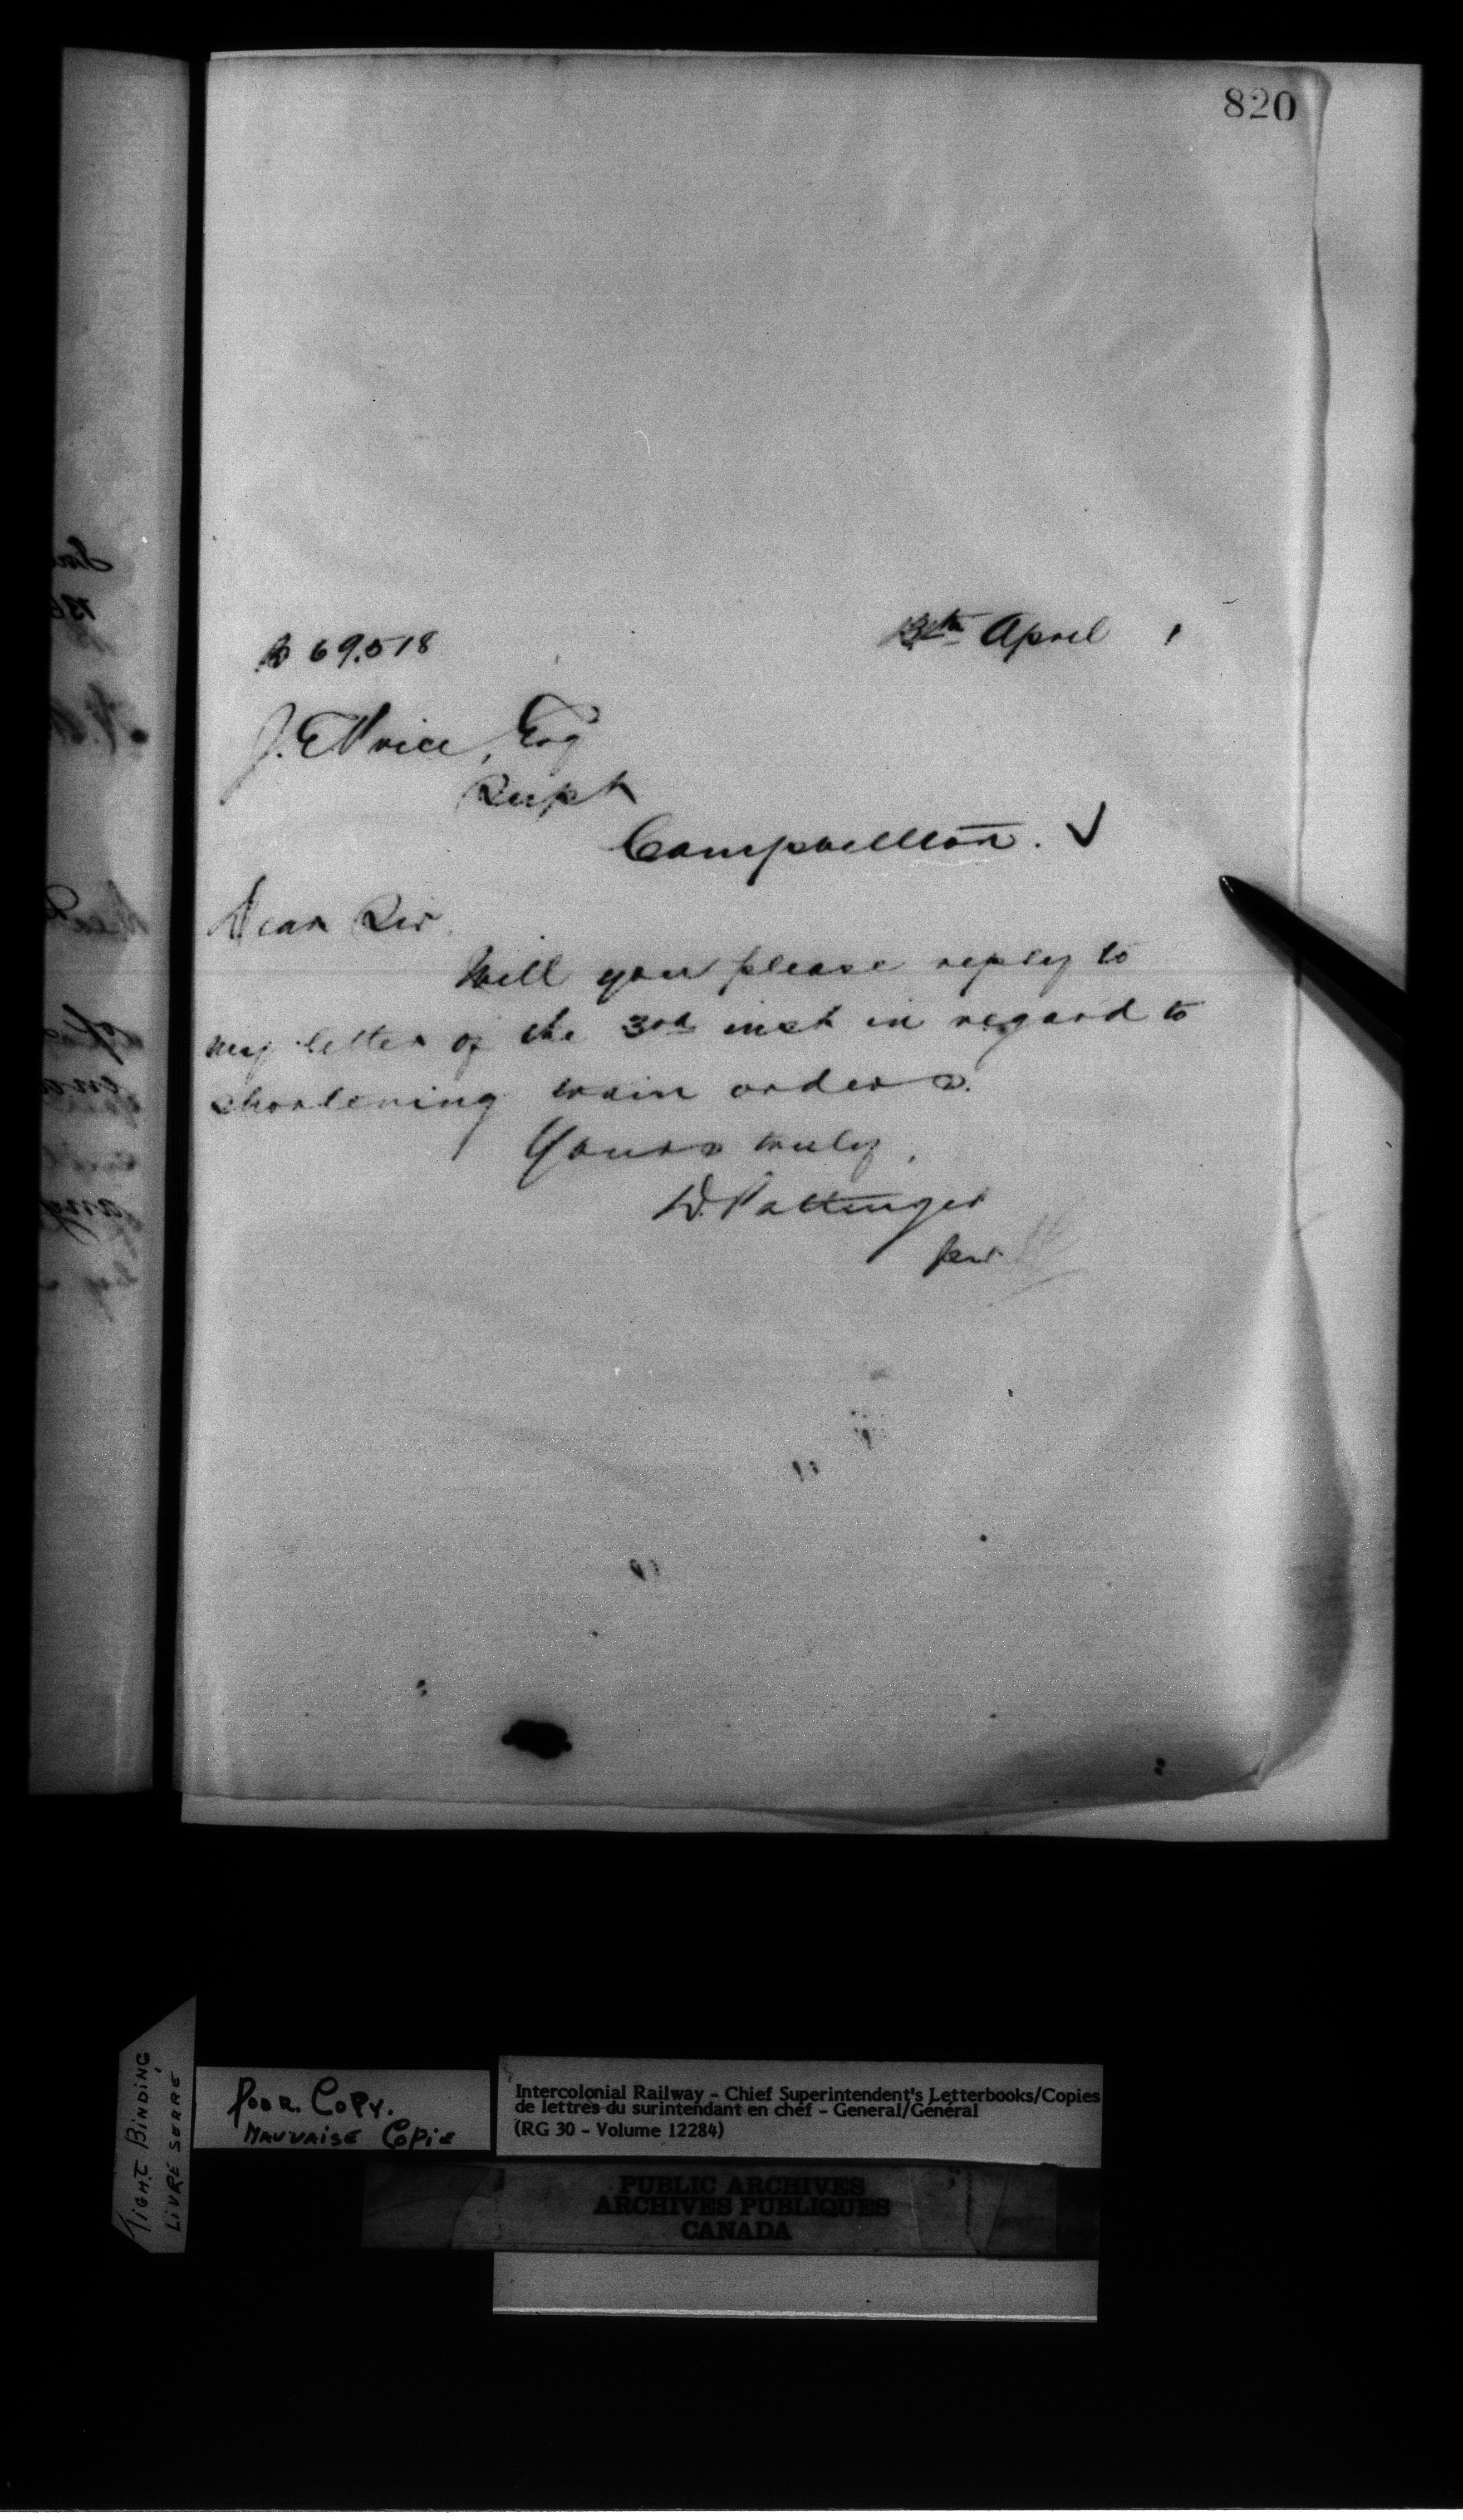 820
13th April
B 69.518
J. E. Price, Esq
Supt
Campbellton.
Dear Sir,
Will you please reply to
my letter of the 3rd inst in regard to
shortening train orders.
Yours truly,
D. Pottinger
per
TIGHT BINDING
LIVRE SERRÉ
POOR COPY.
MAUVAISE COPIE
Intercolonial Railway – Chief Superintendent's Letterbooks/Copies
de lettres du surintendant en chef – General/Général
(RG 30 – Volume 12284)
PUBLIC ARCHIVES
ARCHIVES PUBLIQUES
CANADA